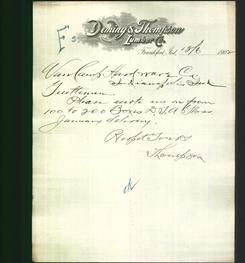 E
Deming & Thompson
Lumber Co.
Frankfort, Ind. 12/6 188
Van Camp Hardware Co.
Indianapolis Ind
Gentlemen.
Please quote us on from
100 to 200 Boxes
January delivery.
Respt Yours
Thompson